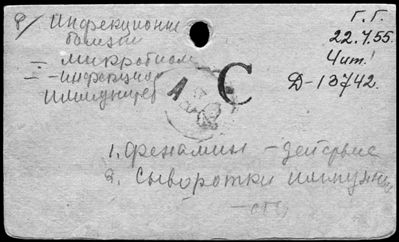 8/ Инфекционн
болезни
– микробиол
– – инфекция
иммунитет
Г. Г.
22.4.55.
Чит!
Д-13742.
А С
1. Фенамин – действие
2. Сыворотки иммунн